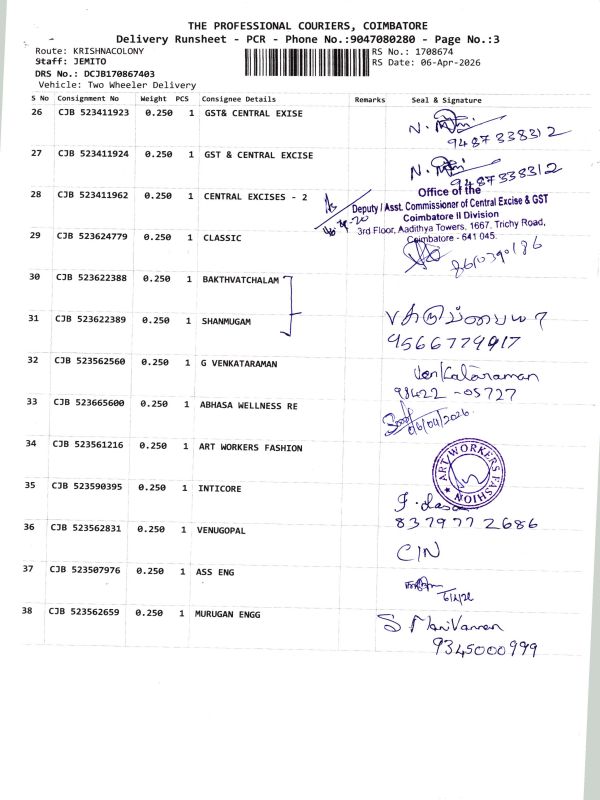 THE PROFESSIONAL COURIERS, COIMBATORE
Delivery Runsheet - PCR - Phone No.:9047080280 - Page No.:3
Route: KRISHNACOLONY
RS No.: 1708674
Staff: JEMITO
RS Date: 06-Apr-2026
DRS No.: DCJB170867403
Vehicle: Two Wheeler Delivery
S No Consignment No Weight PCS Consignee Details Remarks Seal & Signature
26 CJB 523411923 0.250 1 GST& CENTRAL EXISE
9487338312
27 CJB 523411924 0.250 1 GST & CENTRAL EXCISE
9487338312
28 CJB 523411962 0.250 1 CENTRAL EXCISES - 2
Office of the
Deputy / Asst. Commissioner of Central Excise & GST
Coimbatore II Division
3rd Floor, Aadithya Towers, 1667, Trichy Road,
Coimbatore - 641 045.
29 CJB 523624779 0.250 1 CLASSIC
30 CJB 523622388 0.250 1 BAKTHVATCHALAM
31 CJB 523622389 0.250 1 SHANMUGAM
9566779917
32 CJB 523562560 0.250 1 G VENKATARAMAN
Venkataraman
98422-05727
33 CJB 523665600 0.250 1 ABHASA WELLNESS RE
06/04/2026
34 CJB 523561216 0.250 1 ART WORKERS FASHION
ART WORKERS FASHION
35 CJB 523590395 0.250 1 INTICORE
8379772686
36 CJB 523562831 0.250 1 VENUGOPAL
CIN
37 CJB 523507976 0.250 1 ASS ENG
38 CJB 523562659 0.250 1 MURUGAN ENGG
S Manivannan
9345000999